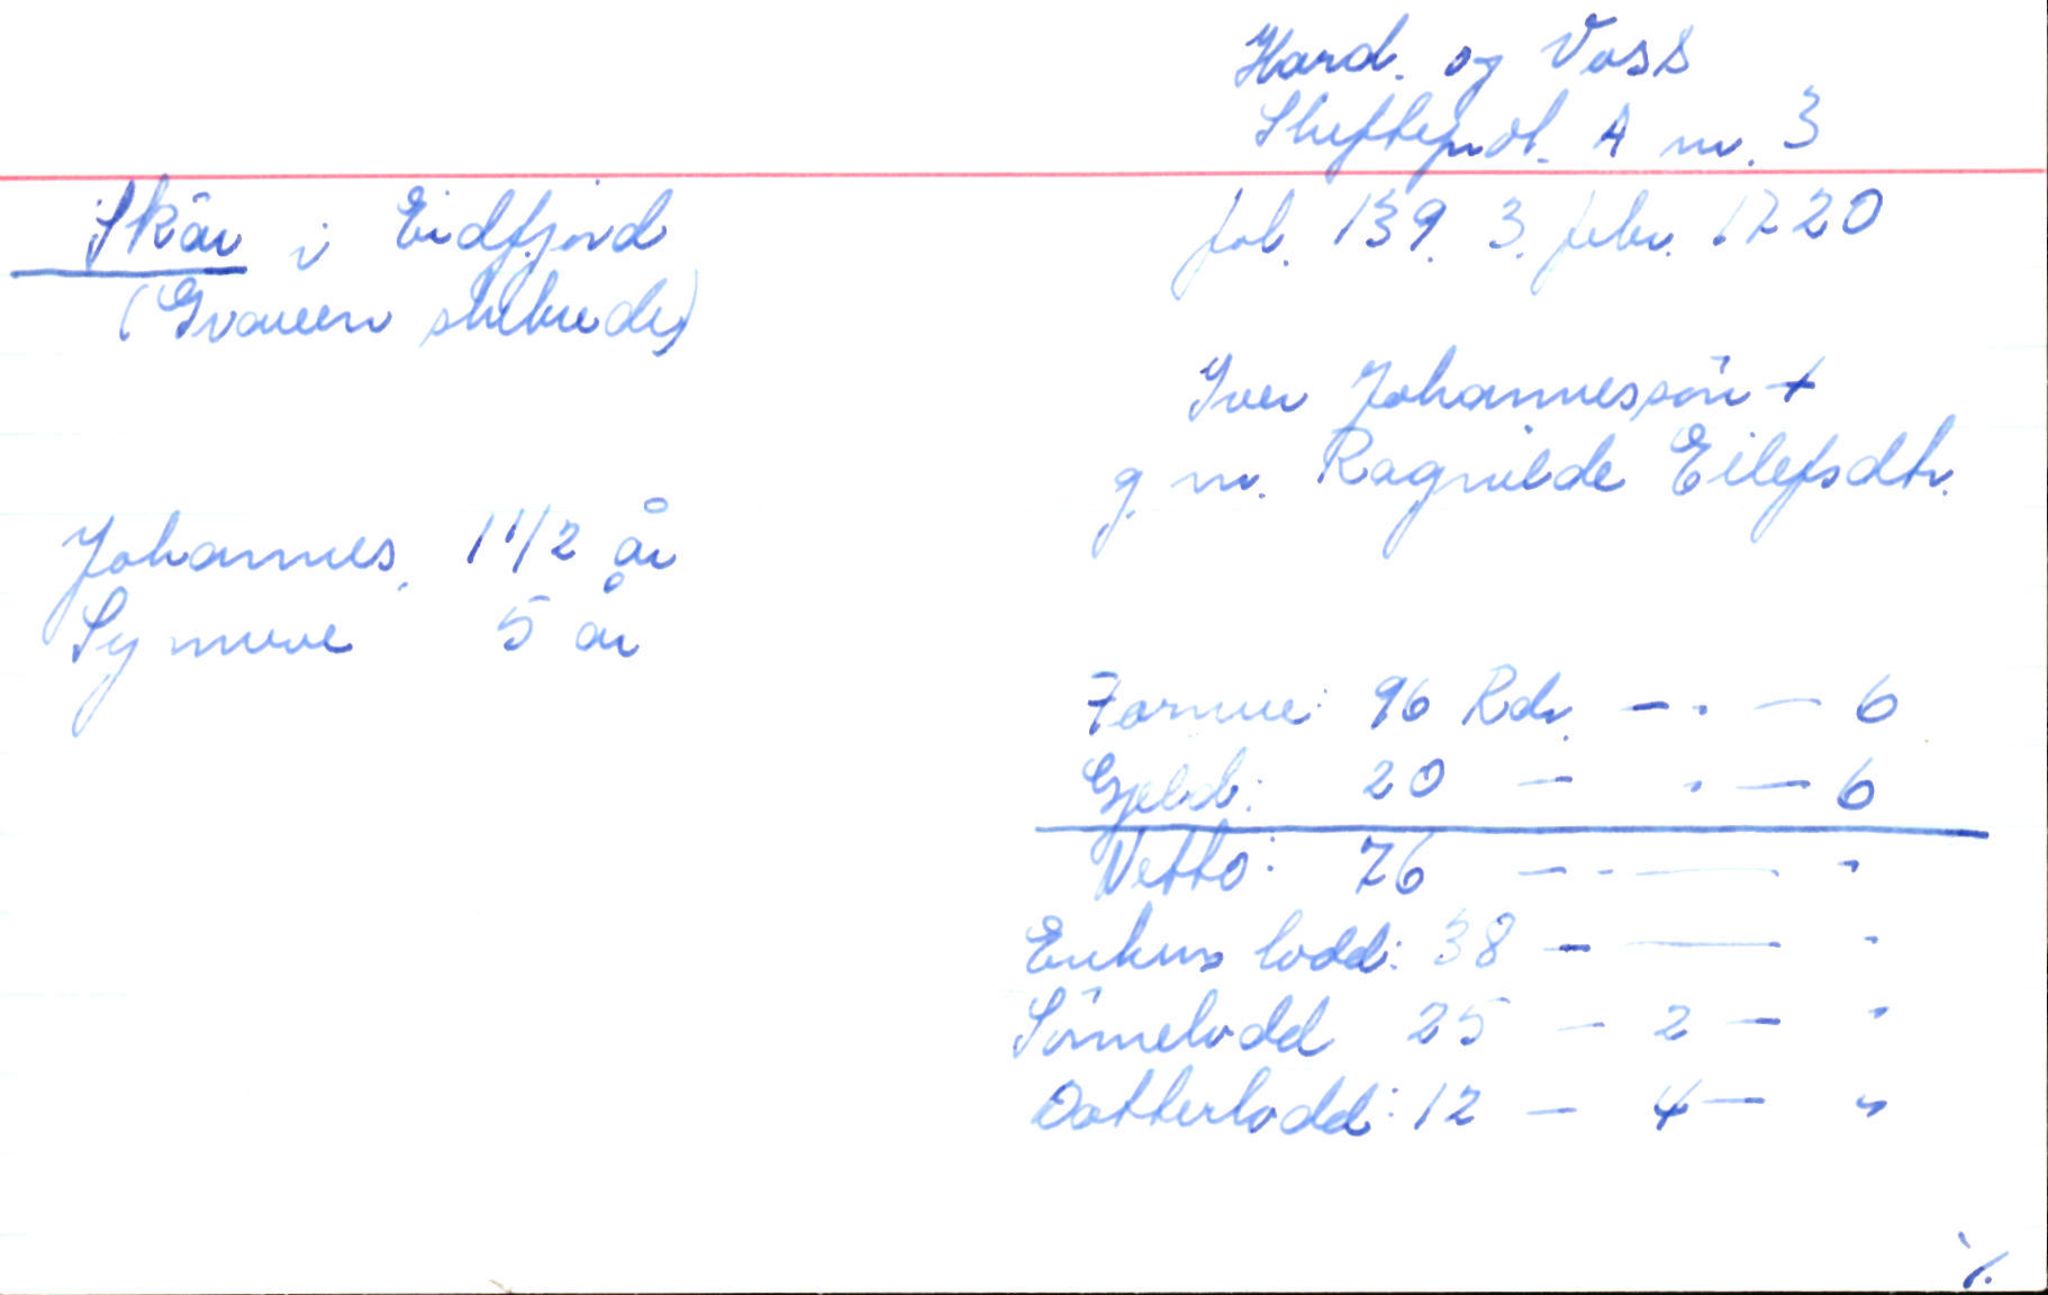 Hard. og Voss
Skifteprot. A nr. 3
fol. 139. 3. febr. 1720
Skår i Eidfjord
(Graven skibrede)
Iver Johannessön +
g. m. Ragnilde Eilefsdtr.
Johannes 1 1/2 år
Synneve 5 år
Formue: 96 Rdr. - . - 6
Gjeld: 20 - . - 6
Netto: 76 - - - "
Enkens lodd: 38 - - "
Sönnelodd 25 - 2 - "
Dotterlodd: 12 - 4 - "
./.